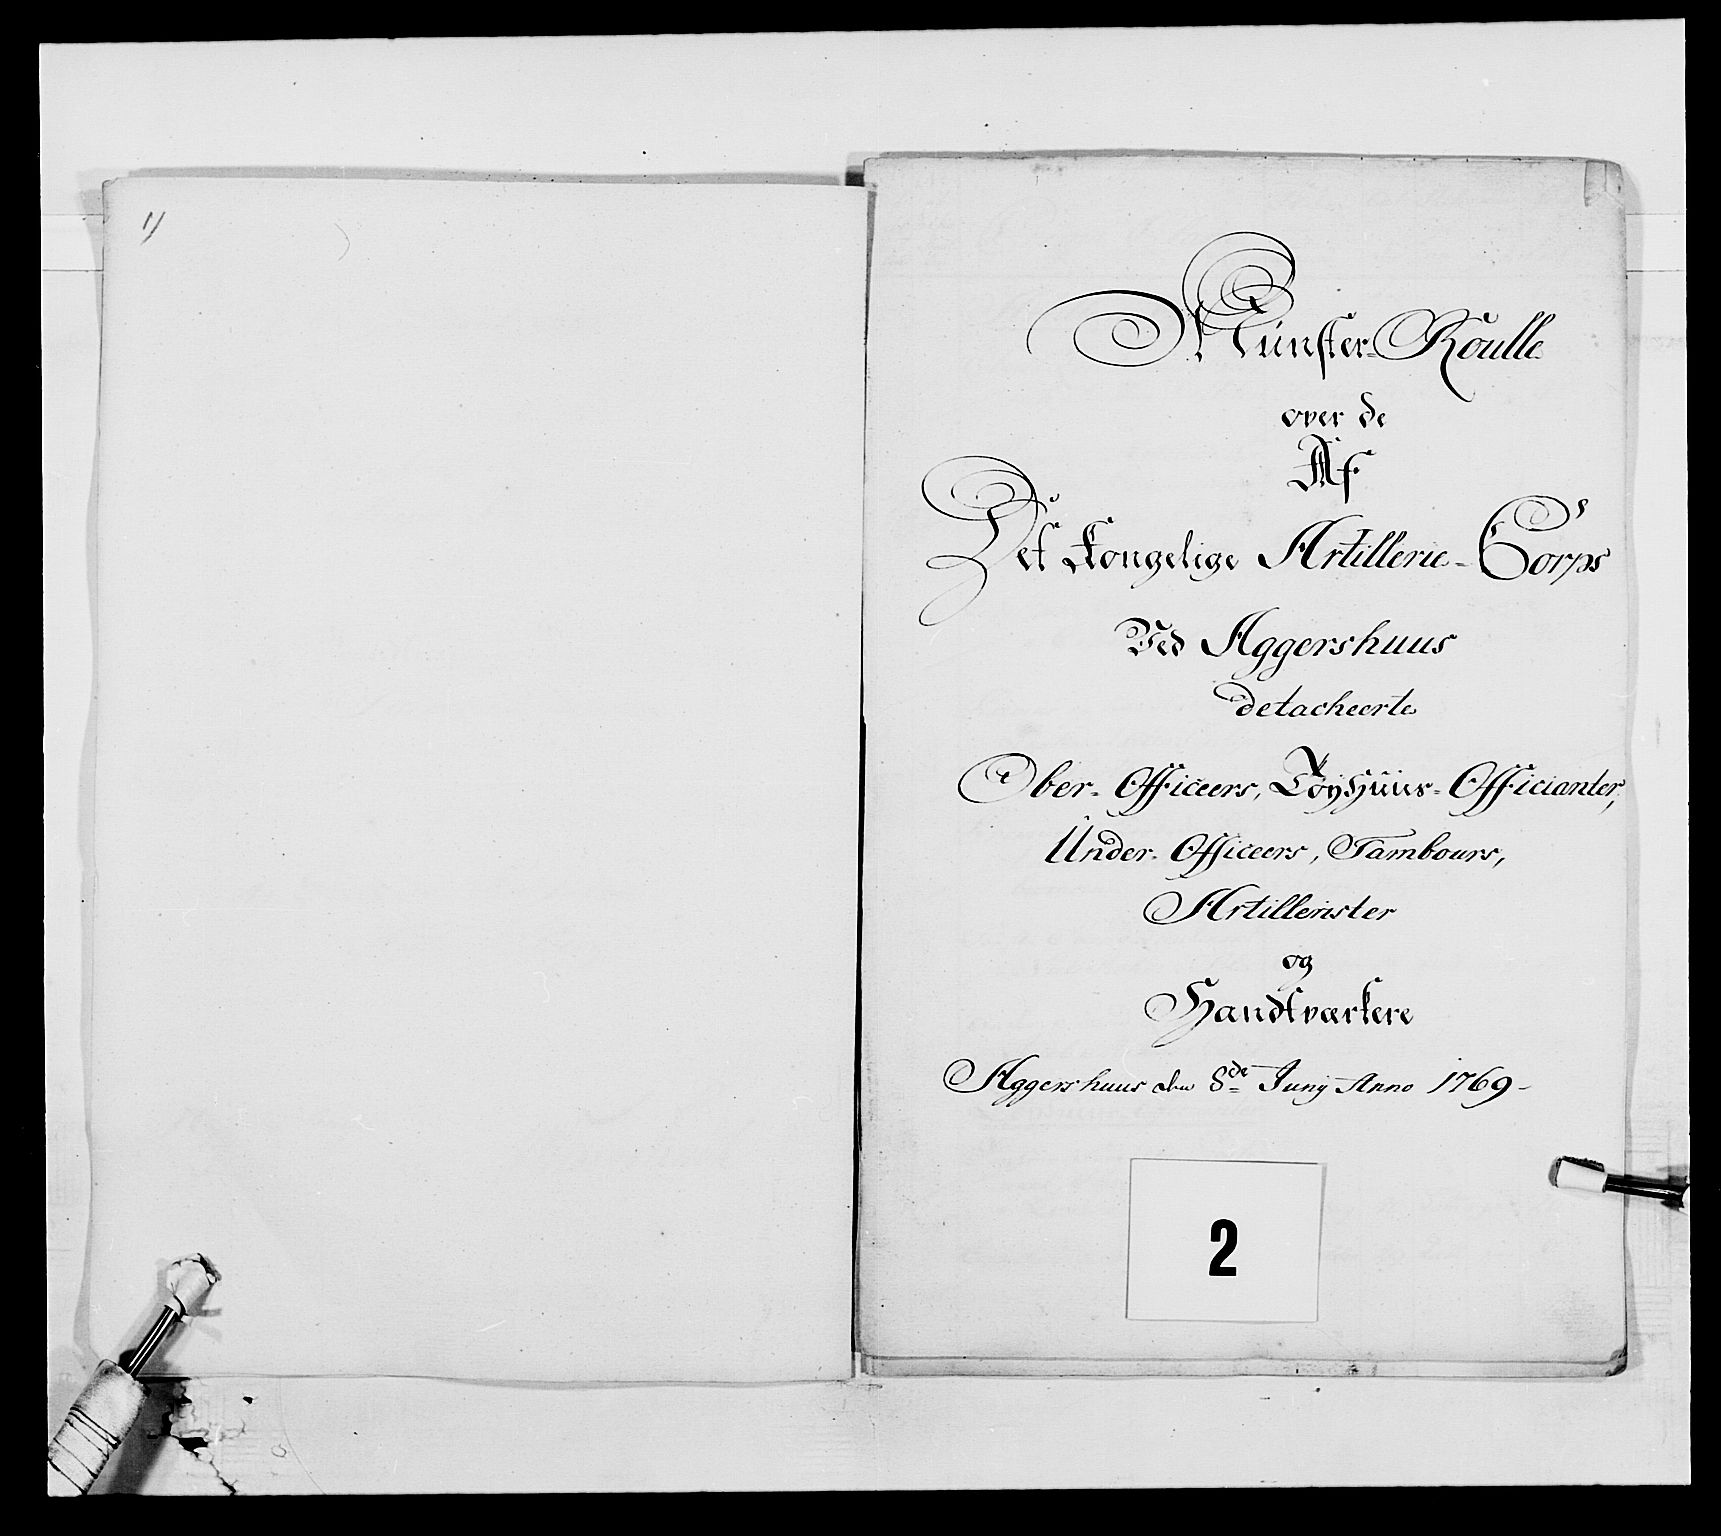 1)
Münster-Roulle
over de
Af
Det Kongelige Artillerie-Corps
Ved Aggershuus
detacheerte
Ober-Officeers, Töyhuus-Officianter,
Under-Officeers, Tambours,
Artillerister
og
Handtværkere
Aggershuus den 8de Junÿ Anno 1769-
2